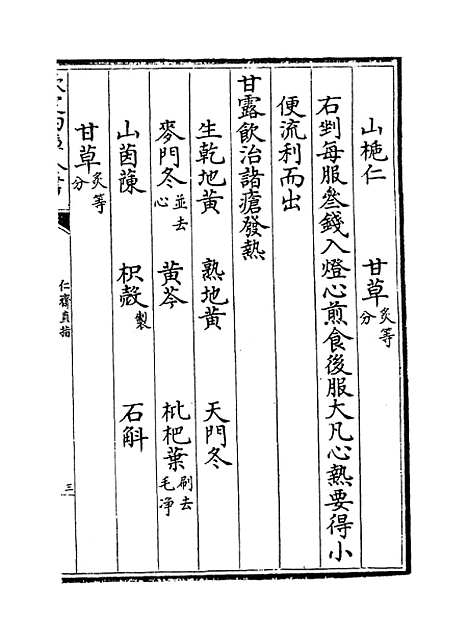 山梔仁　甘草炙等分
右剉每服叄錢入燈心煎食後服大凡心熱要得小
便流利而出
甘露飲治諸瘡發熱
生乾地黃　熟地黃　天門冬
麥門冬並去心　黃芩　枇杷葉刷去毛净
山茵蔯　枳殼製　石斛
甘草炙等分
仁齋直指
三